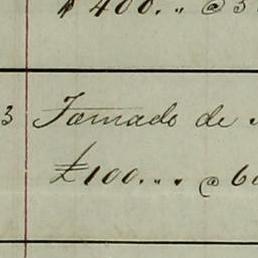 £ 400. " @ 3
3 Tomado de
£100. " " @ 60